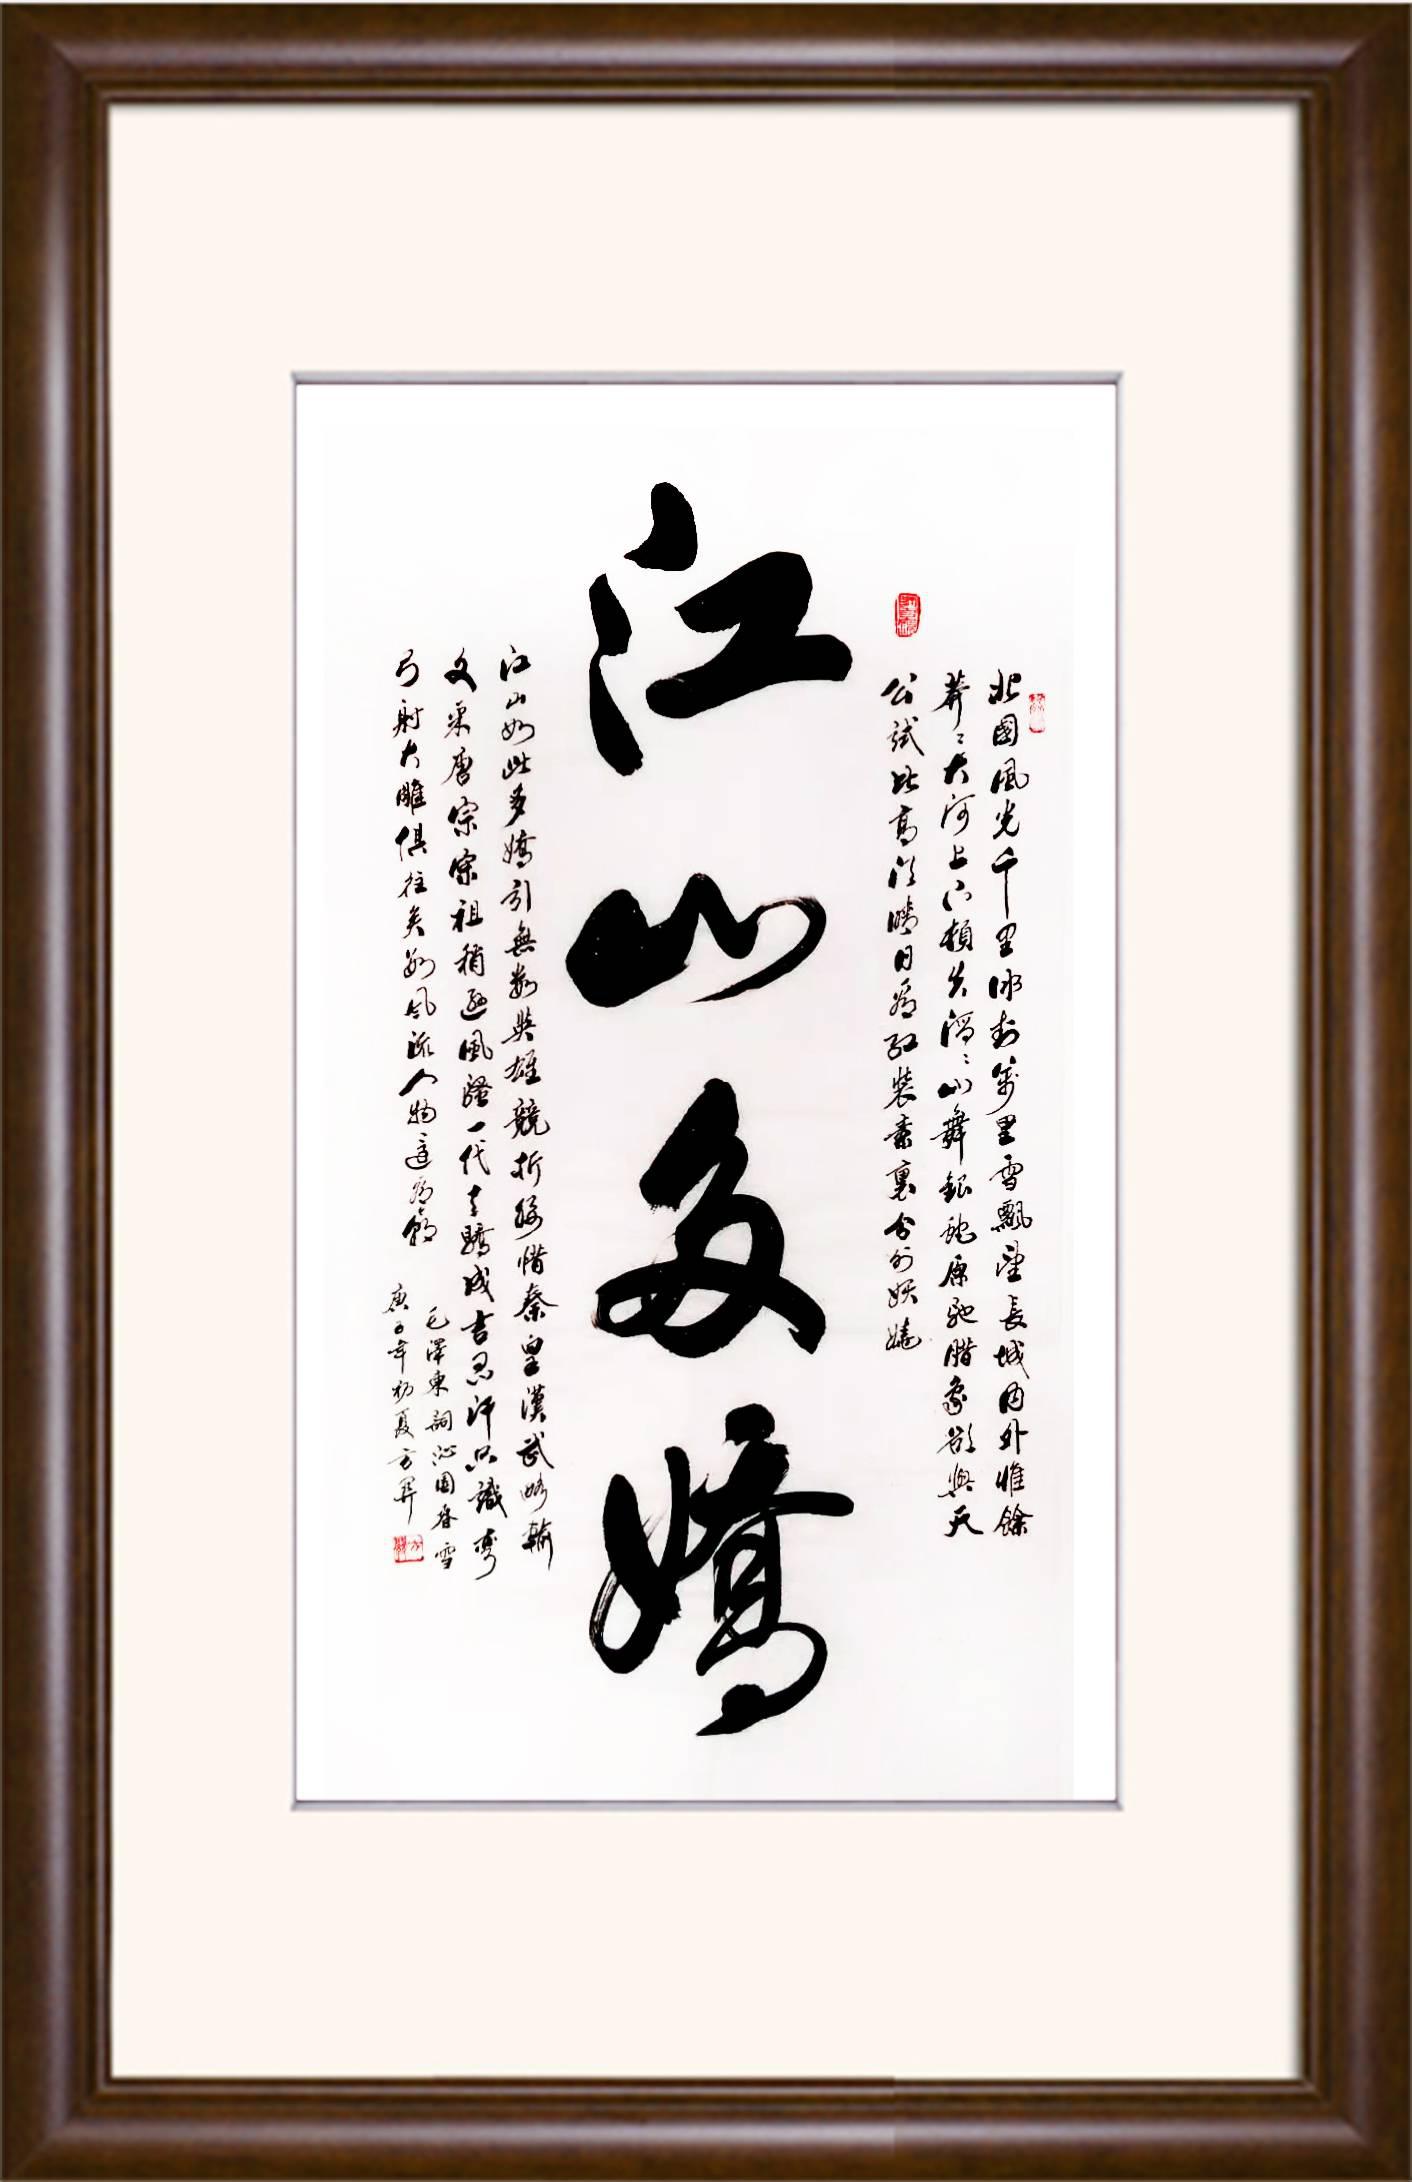 北國風光千里冰封萬里雪飄望長城內外惟餘
莽〻大河上下頓失滔〻山舞銀蛇原馳腊象欲與天
公試比高須晴日看紅裝素裹分外妖嬈
江山多嬌
江山如此多嬌引無數英雄競折腰惜秦皇漢武略輸
文采唐宗宋祖稍遜風騷一代天驕成吉思汗只識彎
弓射大雕俱往矣數風流人物還看今朝
毛澤東詞沁園春雪
庚子年初夏方